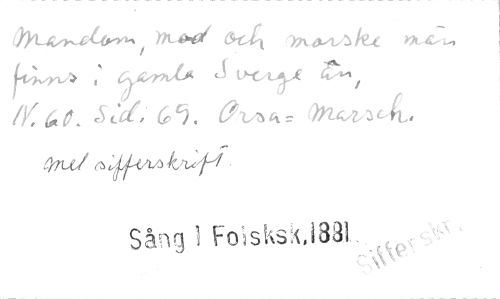 Mandom, mod och morske män
finns i gamla Sverge än,
N. 60. Sid. 69. Orsa= Marsch.
mel sifferskrift.
Sång I Folsksk.1881.
Sifferskr.